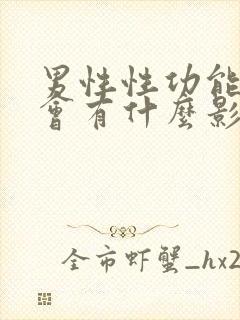 男性性功能
會有什麼影
全市虾蟹_hx2